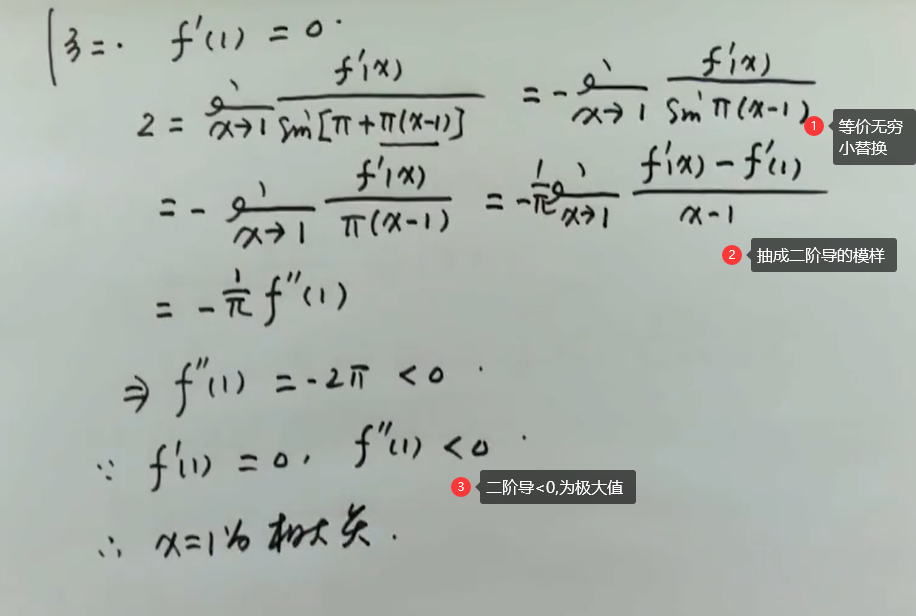 法三: f'(1) = 0.
2 = lim x→1 f'(x) / sin[π + π(x-1)] = - lim x→1 f'(x) / sin π(x-1)
1 等价无穷小替换
= - lim x→1 f'(x) / π(x-1) = - 1/π lim x→1 (f'(x) - f'(1)) / (x-1)
2 抽成二阶导的模样
= - 1/π f''(1)
⇒ f''(1) = -2π < 0.
∵ f'(1) = 0, f''(1) < 0.
3 二阶导<0,为极大值
∴ x=1为极大点.